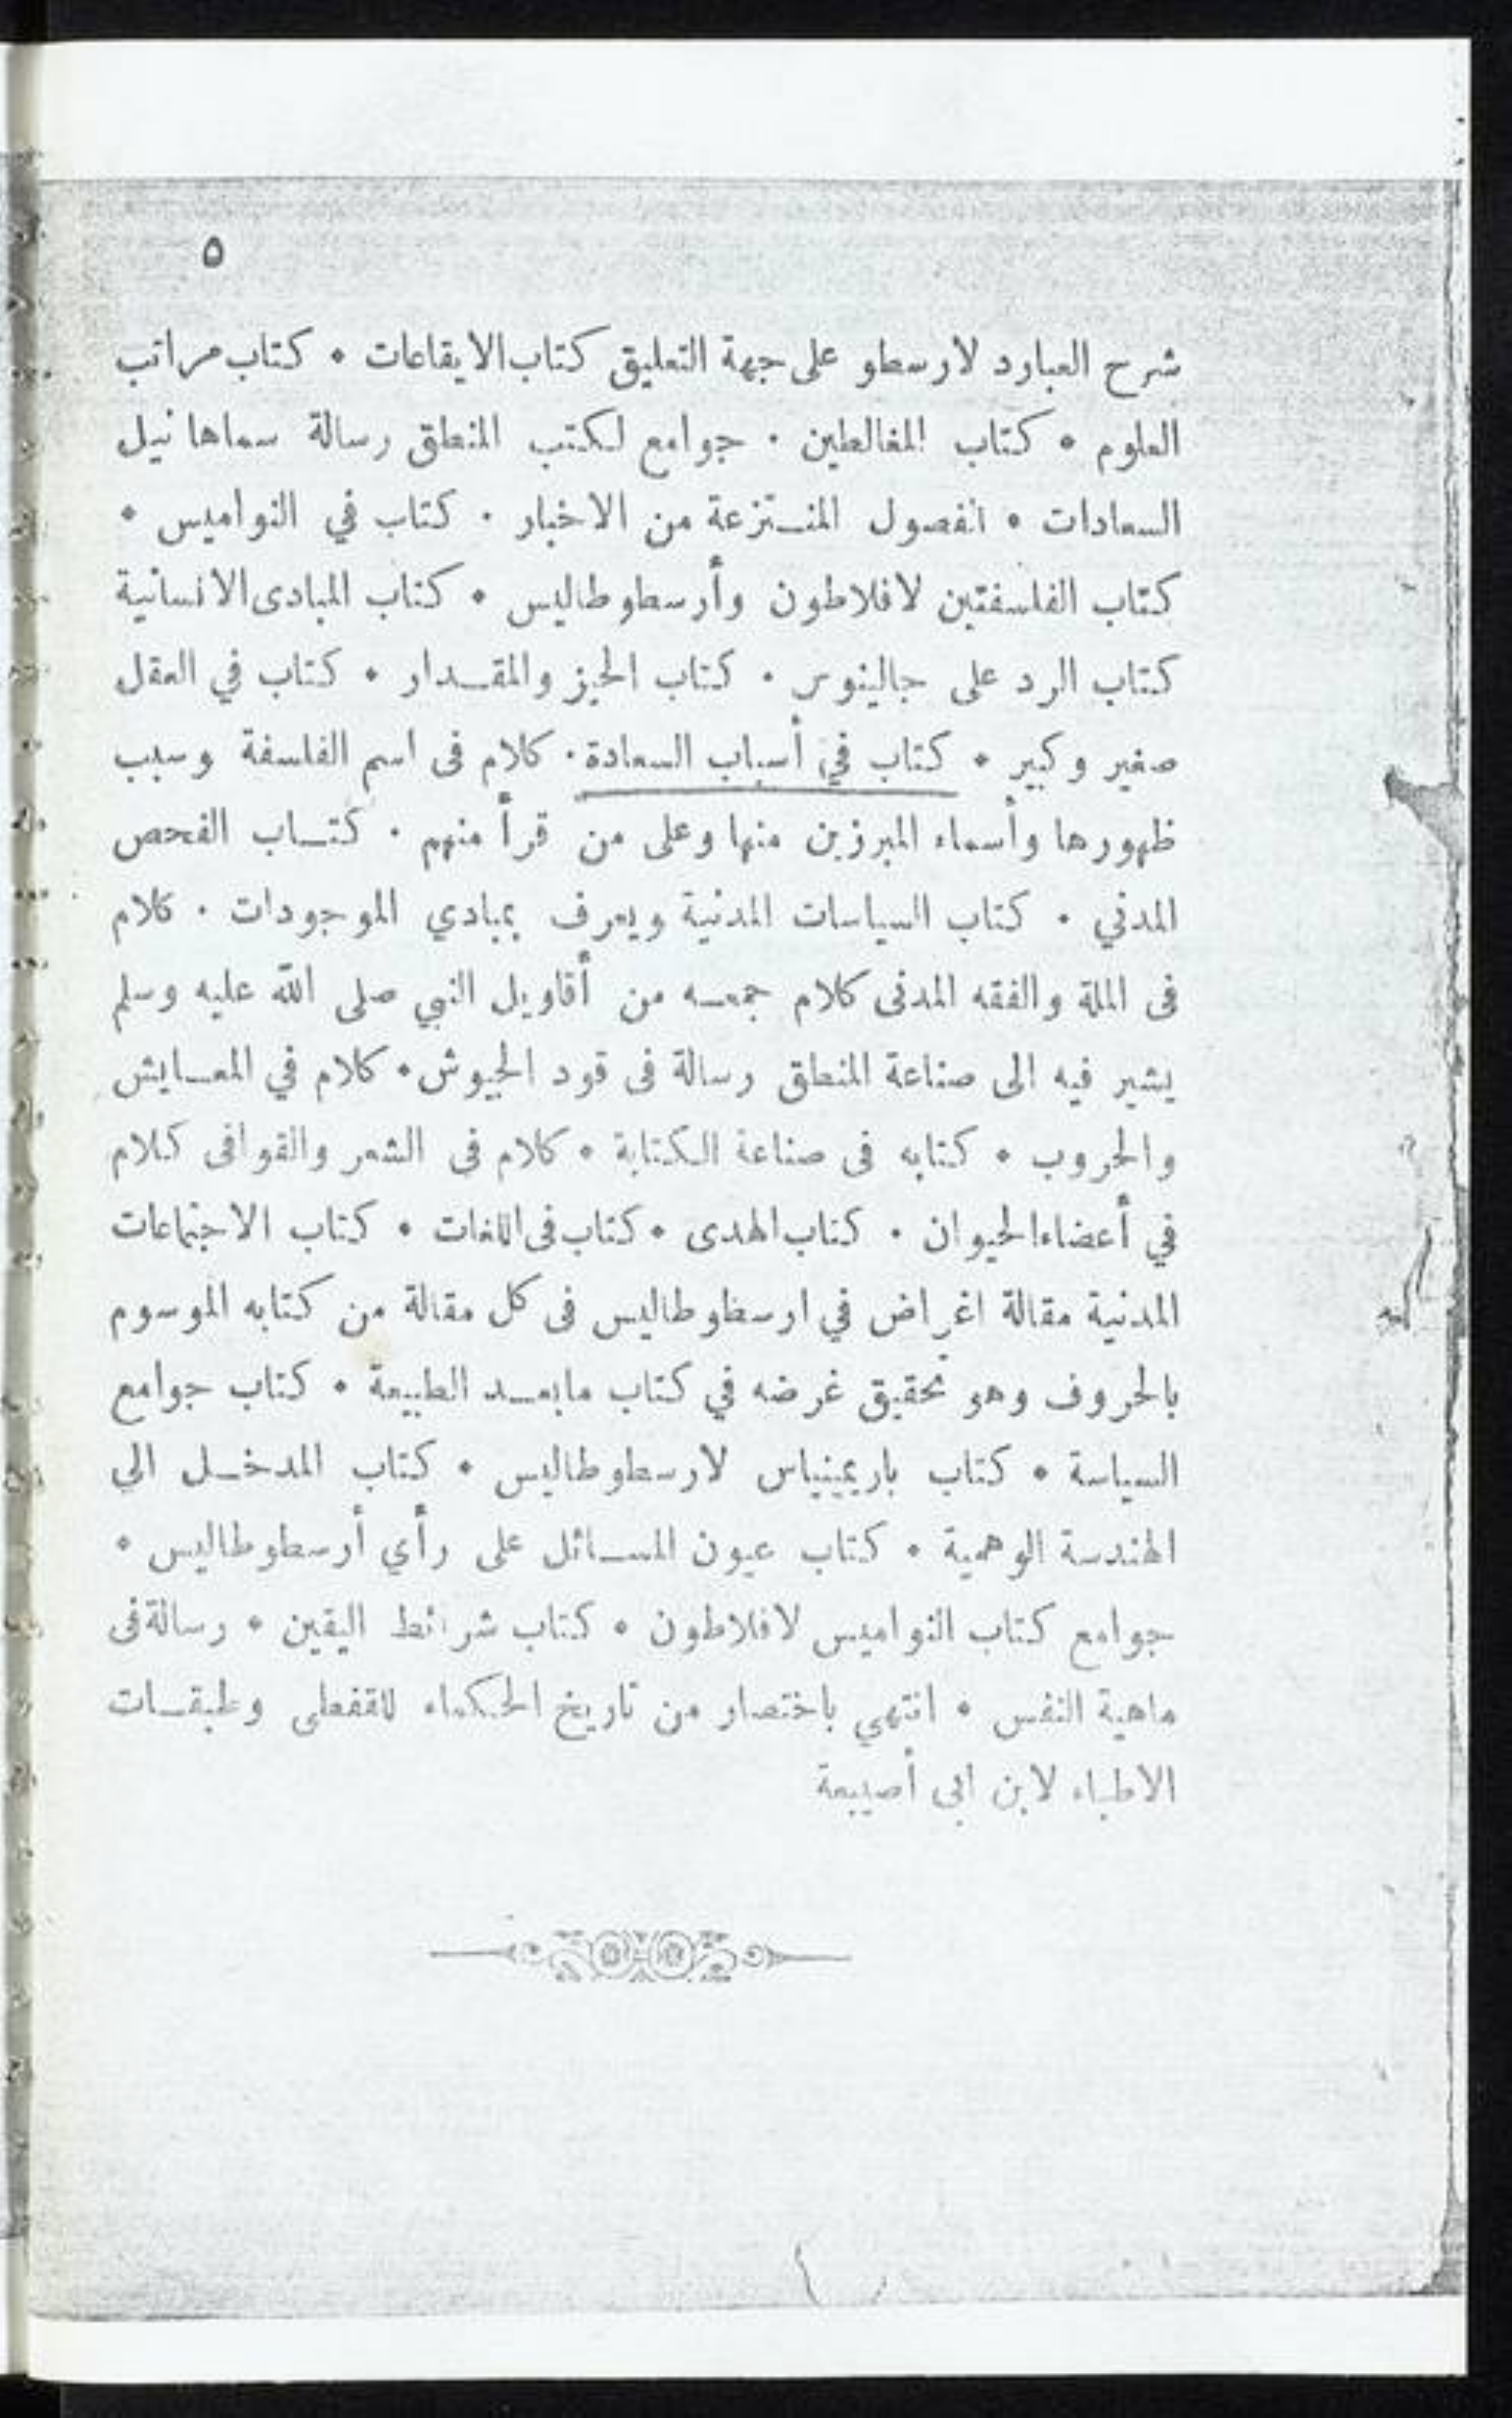 ٥
شرح العبارد لارسطو على جهة التعليق كتاب الايقاعات * كتاب مراتب
العلوم * كتاب المغالطين . جوامع لكتب المنطق رسالة سماها نيل
السعادات * الفصول المنتزعة من الاخبار . كتاب في النواميس *
كتاب الفلسفتين لافلاطون وأرسطوطاليس * كتاب المبادى الانسانية
كتاب الرد على جالينوس . كتاب الحيز والمقدار * كتاب في العقل
صغير وكبير * كتاب في أسباب السعادة . كلام فى اسم الفلسفة وسبب
ظهورها وأسماء المبرزين منها وعلى من قرأ منهم . كتاب الفحص
المدني . كتاب السياسات المدنية ويعرف بمبادي الموجودات . كلام
فى الملة والفقه المدنى كلام جمعه من أقاويل النبي صلى الله عليه وسلم
يشير فيه الى صناعة المنطق رسالة فى قود الجيوش * كلام في المعايش
والحروب * كتابه فى صناعة الكتابة * كلام فى الشعر والقوافى كلام
في أعضاء الحيوان . كتاب الهدى * كتاب فى اللغات * كتاب الاجتماعات
المدنية مقالة اغراض في ارسطوطاليس فى كل مقالة من كتابه الموسوم
بالحروف وهو تحقيق غرضه في كتاب مابعد الطبيعة * كتاب جوامع
السياسة * كتاب باريمينياس لارسطوطاليس * كتاب المدخل الي
الهندسة الوهمية * كتاب عيون المسائل على رأي أرسطوطاليس *
جوامع كتاب النواميس لافلاطون * كتاب شرائط اليقين * رسالة فى
ماهية النفس * انتهي باختصار من تاريخ الحكماء للقفطى وطبقات
الاطباء لابن ابى أصيبعة